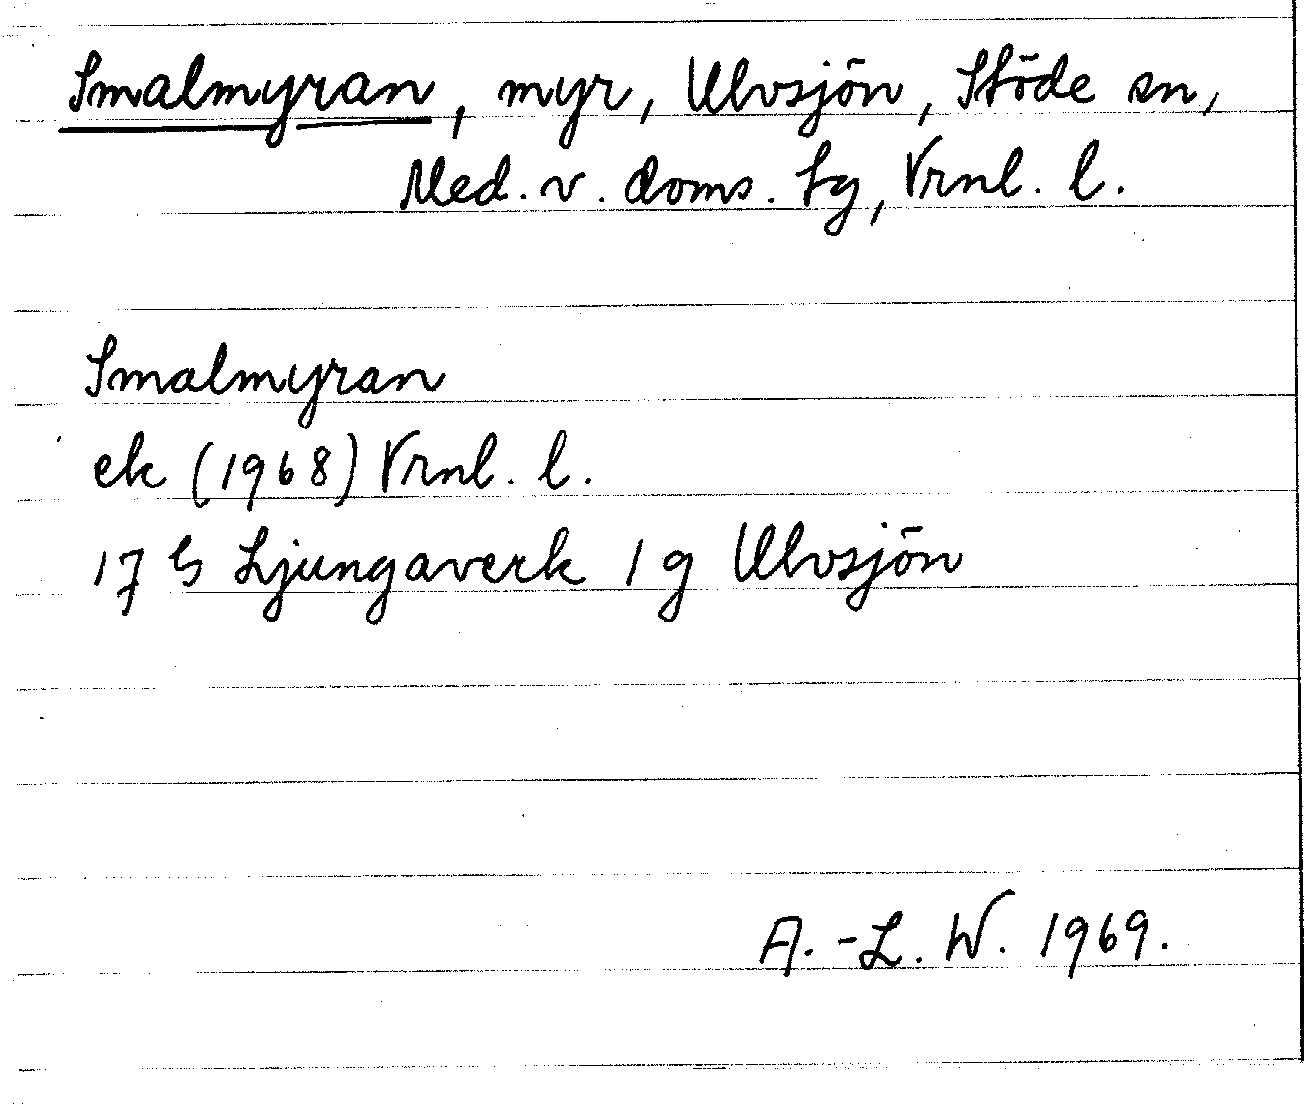 Smalmyran, myr, Ulvsjön, Stöde sn,
Med. v. doms. tg, Vrnl. l.
Smalmyran
ek (1968) Vrnl. l.
17 G Ljungaverk 1 g Ulvsjön
A.-L. W. 1969.